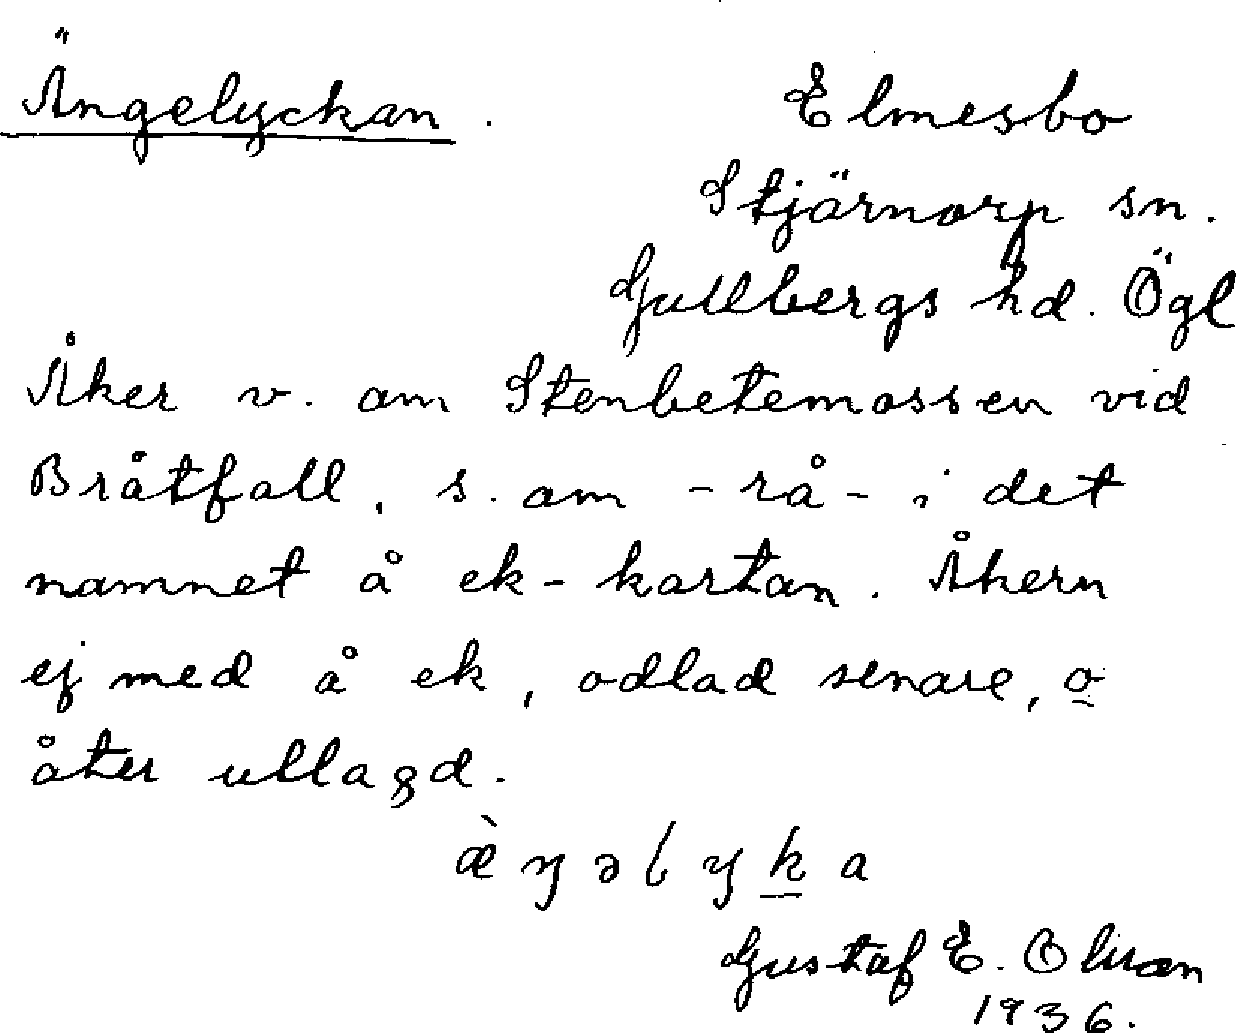 Ängelyckan.
Elmesbo
Stjärnorp sn.
Gullbergs hd. Ögl
Åker v. om Stenbetemossen vid
Bråtfall, s. om -rå- i det
namnet å ek-kartan. Åkern
ej med å ek, odlad senare, o
åter utlagd.
æ̀ŋəlyka
Gustaf E. Olson
1936.